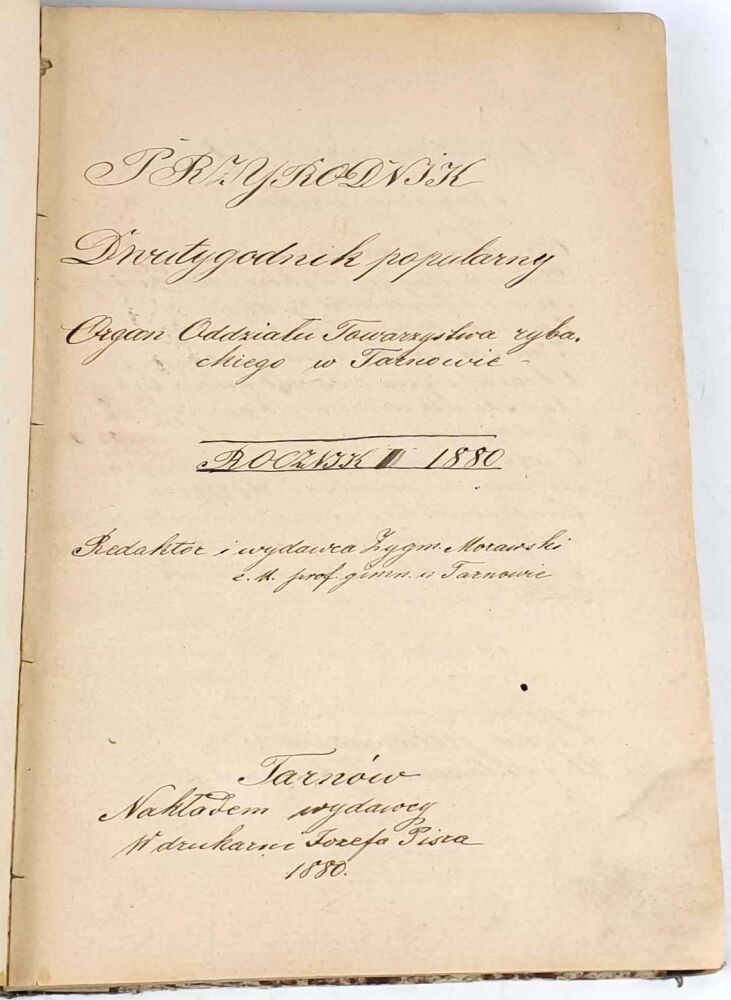 PRZYRODNIK
Dwutygodnik popularny
Organ Oddziału Towarzystwa ryba,
ckiego w Tarnowie
ROCZNIK II 1880
Redaktor i wydawca Zygm. Morawski
c. k. prof. gimn. w Tarnowie
Tarnów
Nakładem wydawcy
W drukarni Józefa Pisza
1880.